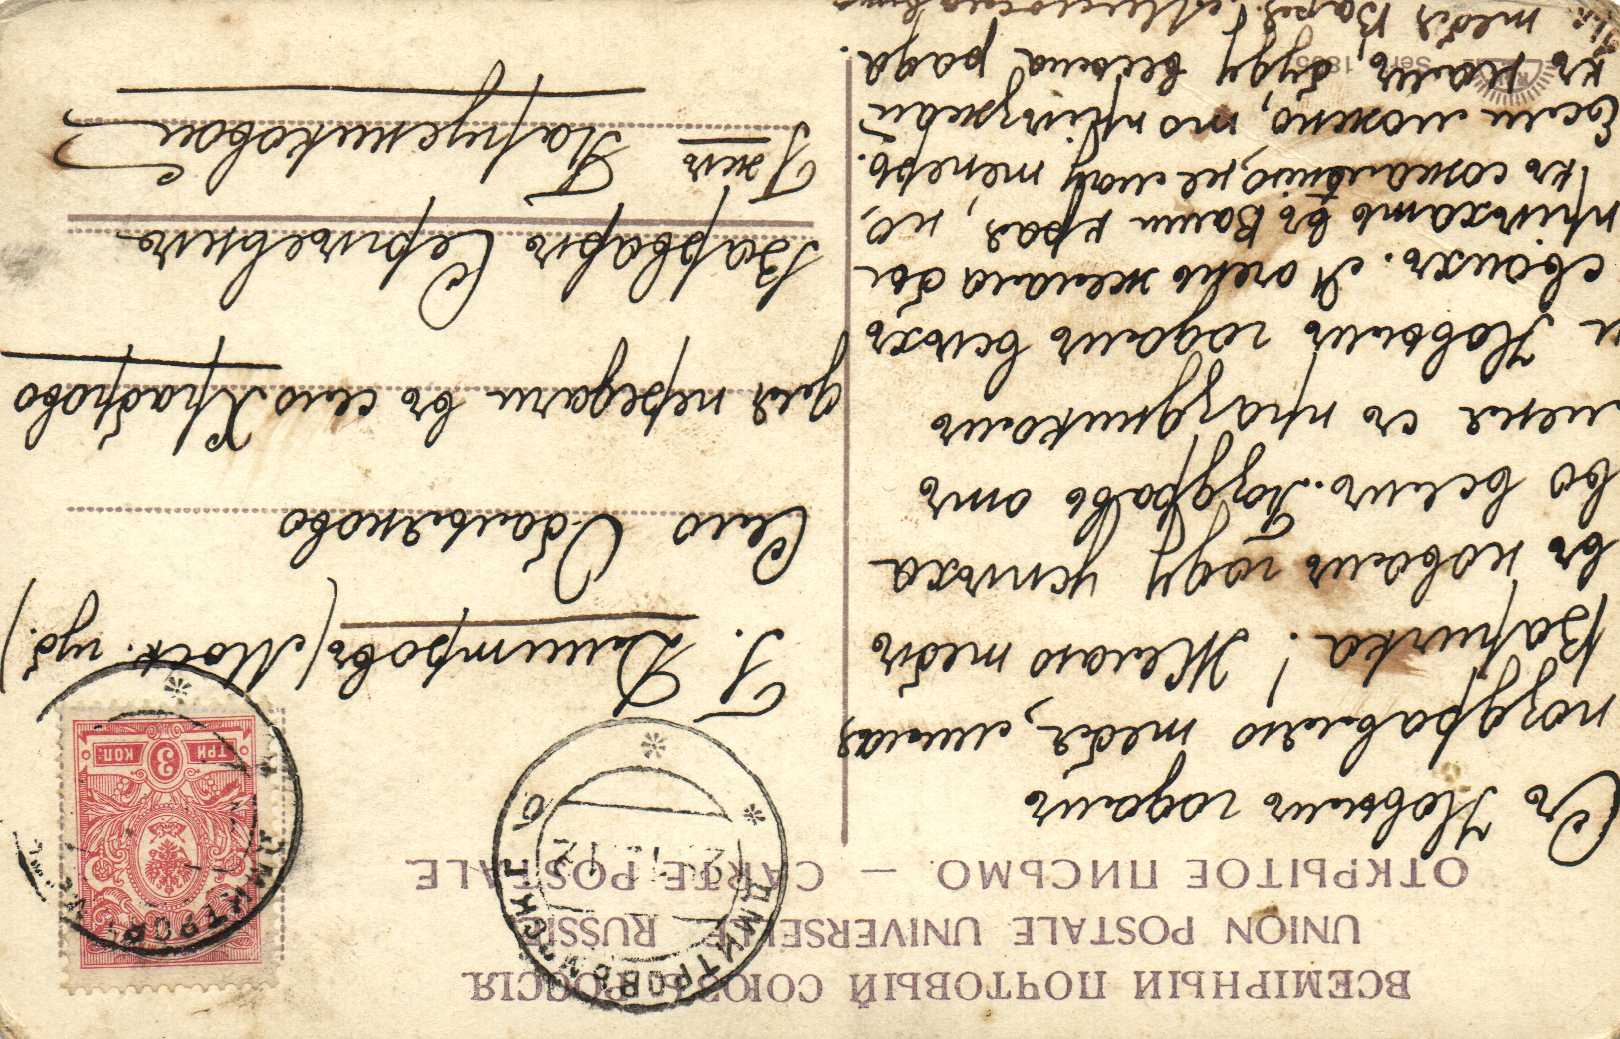 ВСЕМІРНЫЙ ПОЧТОВЫЙ СОЮЗЪ. РОССІЯ
UNION POSTALE UNIVERSELLE. RUSSIE
ОТКРЫТОЕ ПИСЬМО. — CARTE POSTALE
Съ Новымъ годомъ
поздравляю тебя, милая
Варичка! Желаю тебѣ
въ новомъ году успѣха
во всемъ. Поздравь отъ
меня съ праздникомъ
и Новымъ годомъ всѣхъ
своихъ. Я очень желала бы
пріѣхать въ Ваши края, но,
къ сожалѣнію, не могу теперь.
Если можно, то пріѣзжай
къ намъ, буду весьма рада
тебѣ
ТРИ 3 КОП.
ДМИТРОВЪ
ДМИТРОВЪ МОСК. Г.
Г. Дмитровъ (Моск. губ.)
Село Обольяново
для передачи въ село Храброво
Варварѣ Сергѣевнѣ
Гжѣ
Serie 1895